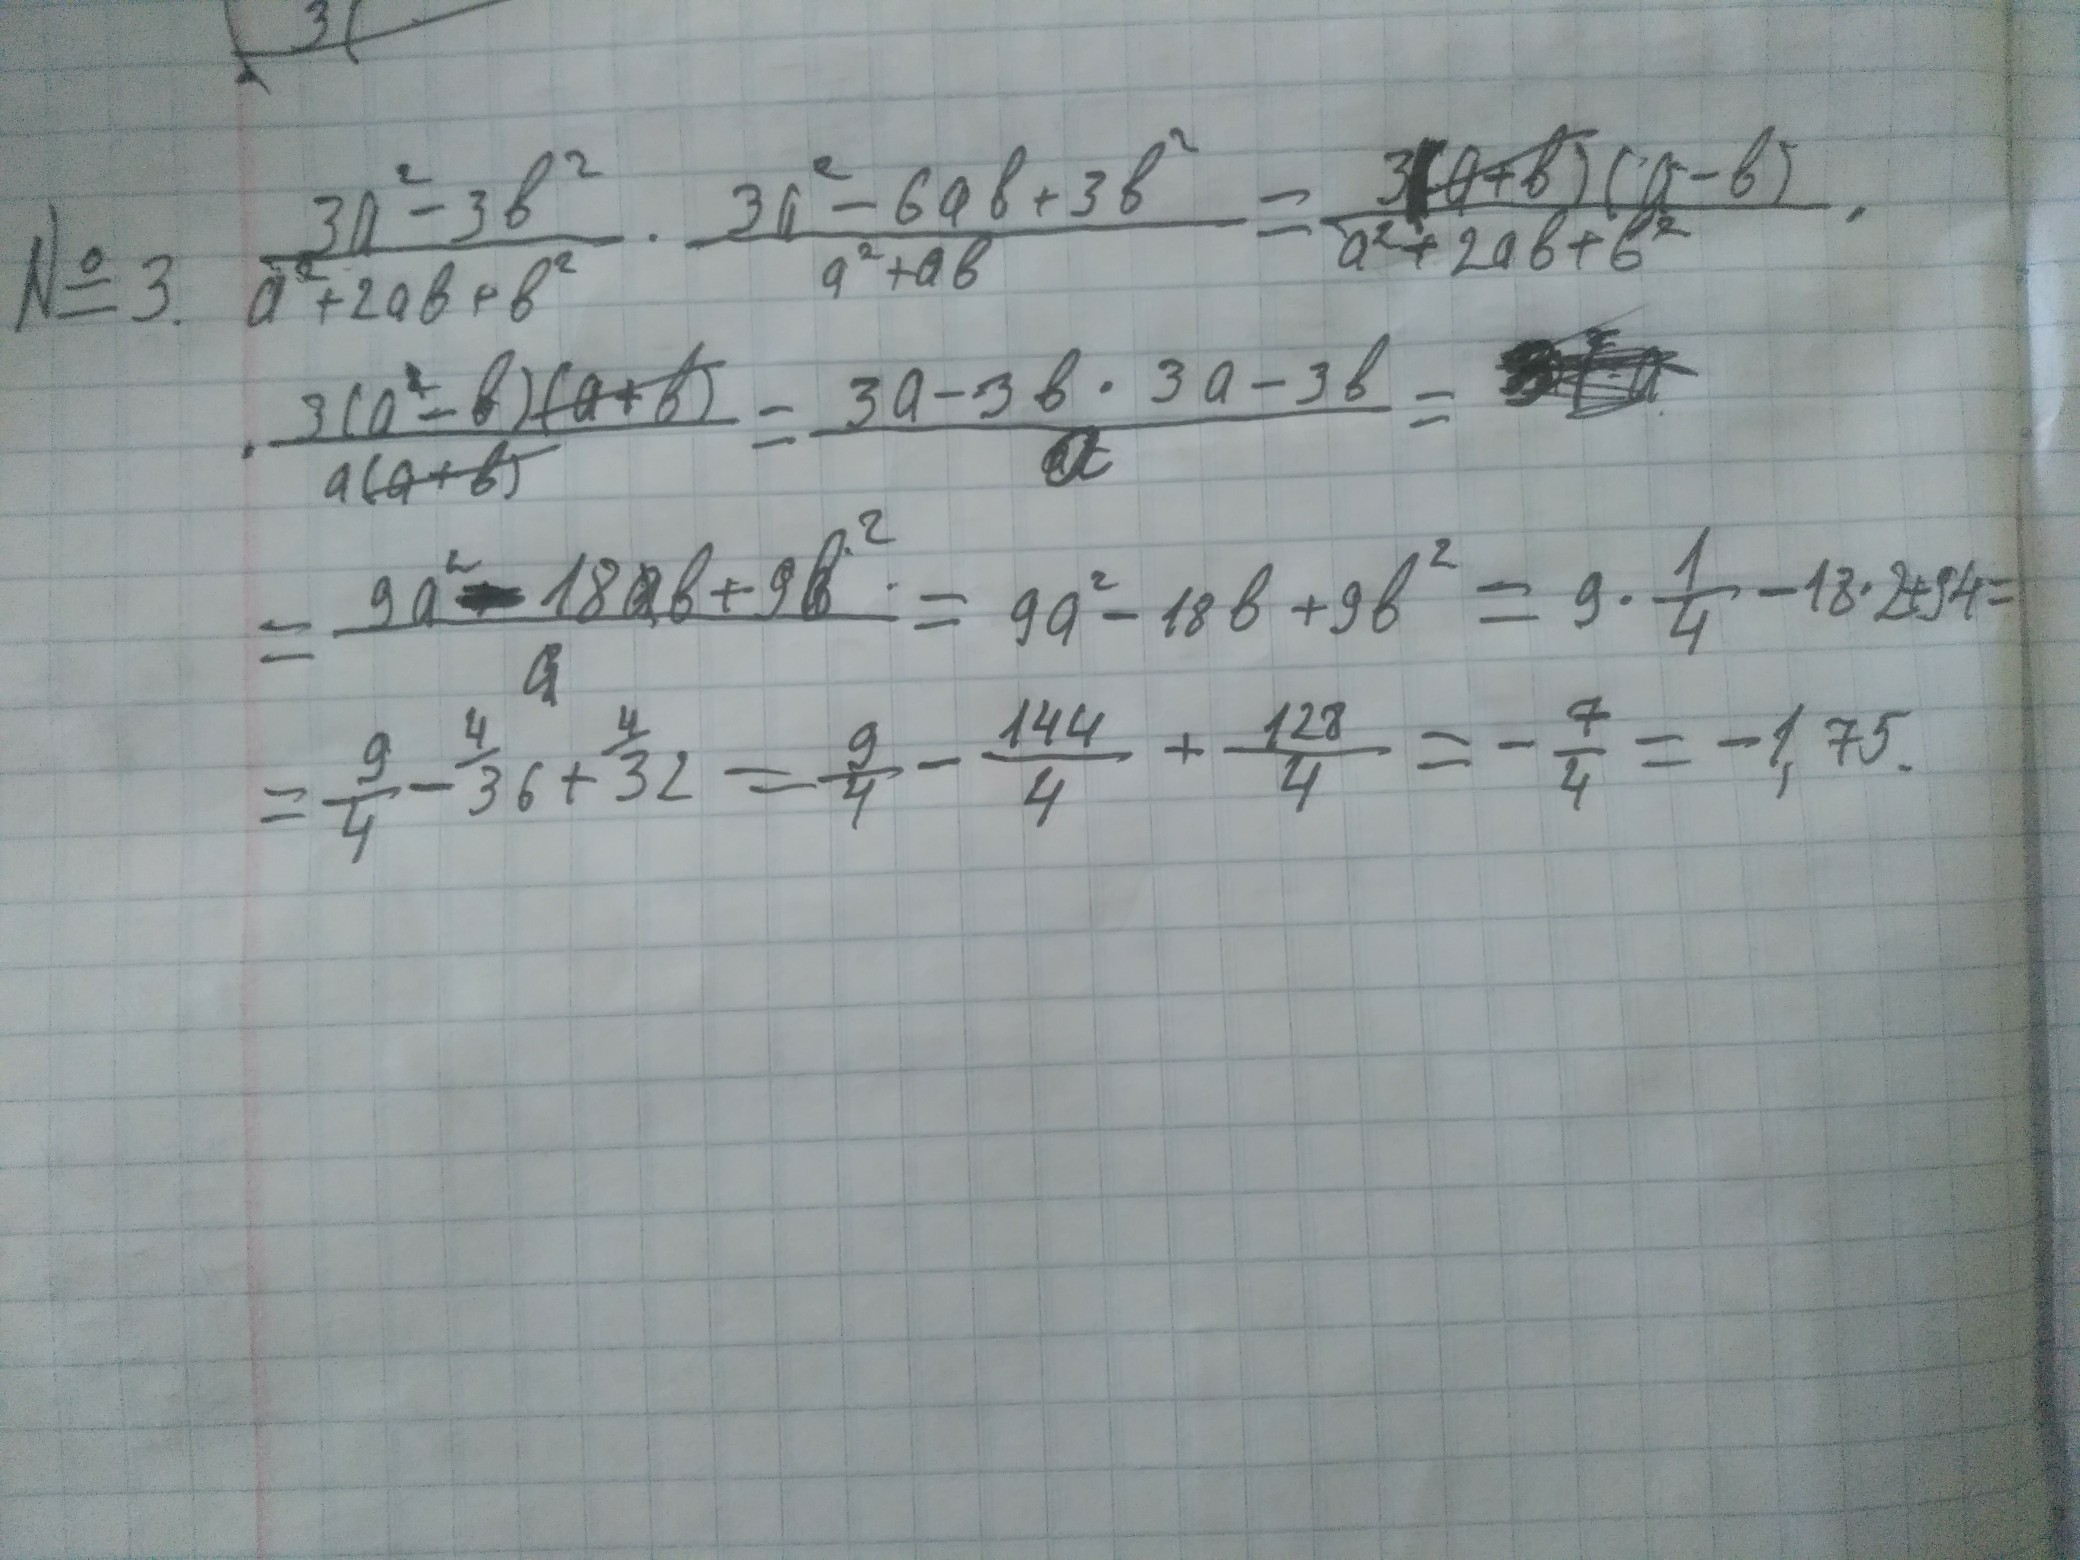 3(
№3. (3a² - 3b²)/(a² + 2ab + b²) · (3a² - 6ab + 3b²)/(a² + ab) = 3(a+b)(a-b)/(a² + 2ab + b²) ·
· 3(a² - b)(a+b)/(a(a+b)) = (3a - 3b · 3a - 3b)/a =
= (9a² - 18ab + 9b²)/a = 9a² - 18b + 9b² = 9 · 1/4 - 18·2+94=
= 9/4 - 4/36 + 4/32 = 9/4 - 144/4 + 128/4 = - 7/4 = -1,75.